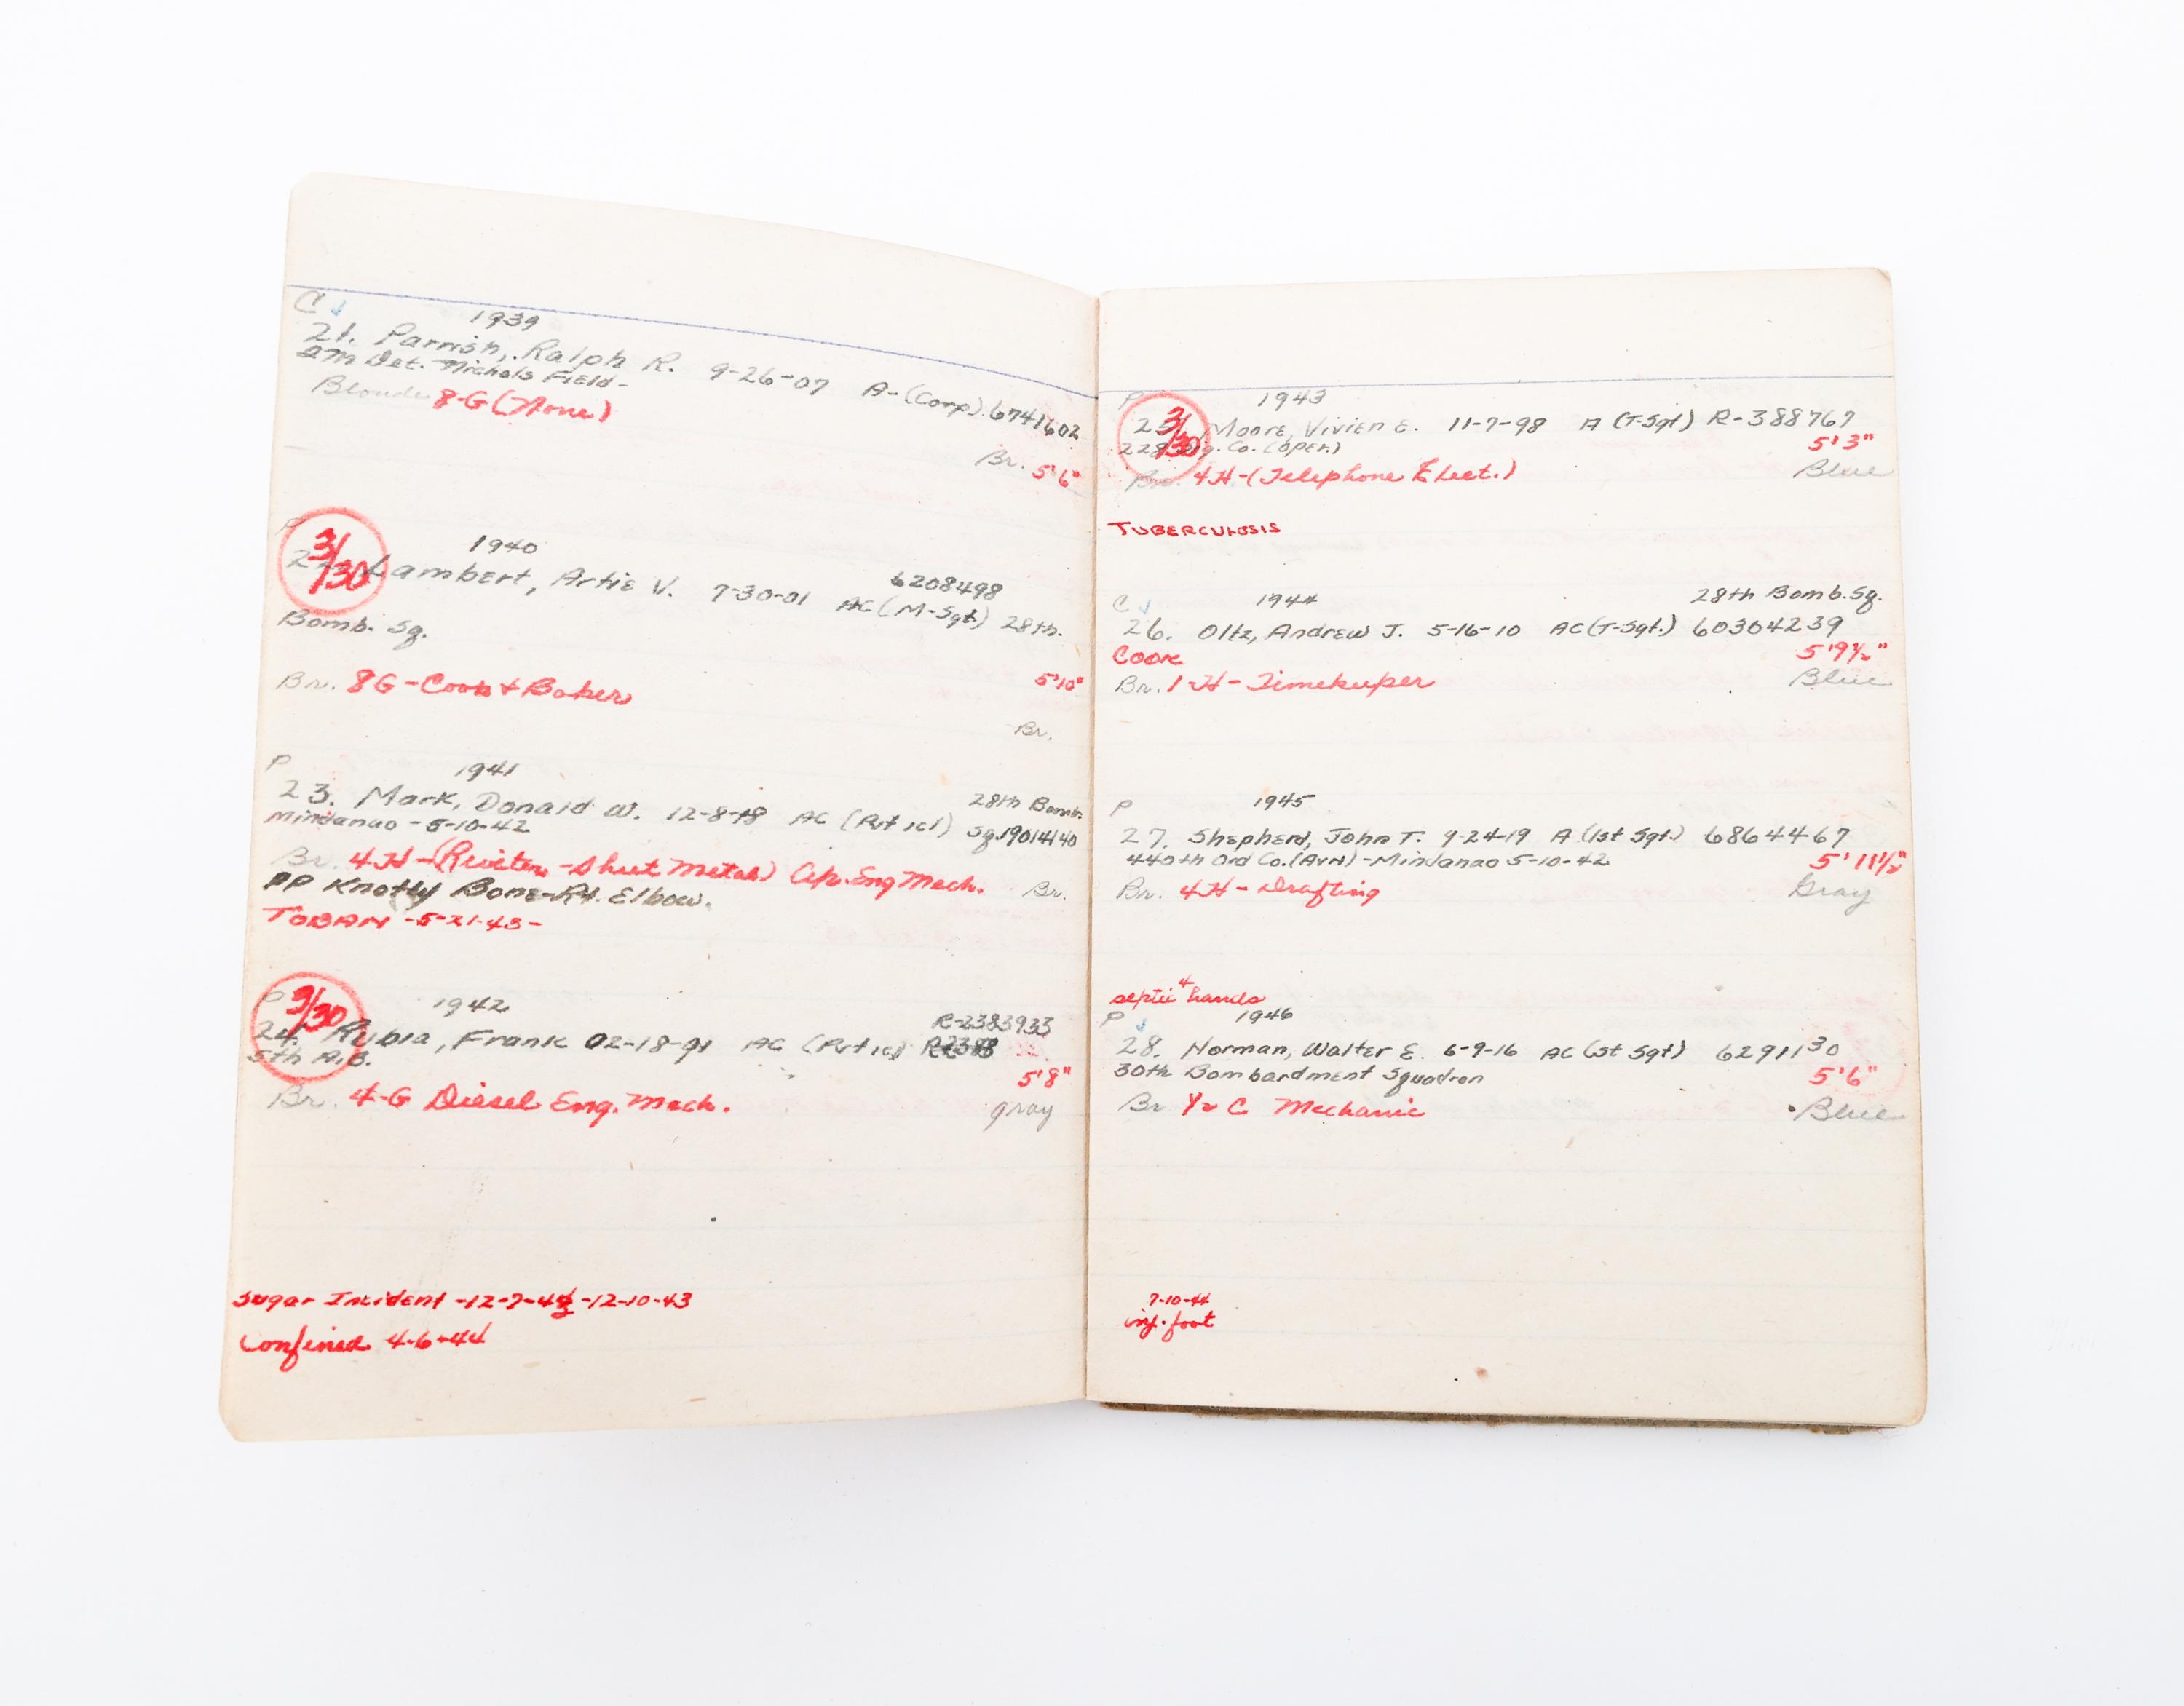 C
1939
21. Parrish, Ralph R. 9-26-07 A-(Corp). 6741602
QM Det. Nichols Field-
Blonde 8-G (None)
Br. 5'6"
P
3/30
1940
22. Lambert, Artie V. 7-30-01 AC (M-Sgt) 28th.
6208498
Bomb. Sq.
5'10"
Br. 8G - Cook + Baker
Br.
P
1941
23. Mark, Donald W. 12-8-18 AC (Pvt 1cl) 28th Bomb.
Mindanao - 5-10-42 Sq. 19014140
Br. 4H - (Riveter - Sheet Metal) Ap. Eng Mech. Br.
PP Knotty Bone-Rt. Elbow.
TOBAN -5-21-43-
P
3/30
1942
R-2383933
24. Rubia, Frank 02-18-91 AC (Pvt 1cl)
5th A.B.
5'8"
Br. 4-G Diesel Eng. Mech. gray
Sugar Incident -12-7-43 -12-10-43
Confined 4-6-44
P
1943
3/30
25. Moore, Vivien E. 11-7-98 A (T-Sgt) R-388767
228 Sig. Co. (Oper.) 5'3"
Br. 4H - (Telephone Elect.) Blue
TUBERCULOSIS
C
1944 28th Bomb. Sq.
26. Oltz, Andrew J. 5-16-10 AC (T-Sgt.) 60304239
Cook 5'9½"
Br. 1-H - Timekeeper Blue
P
1945
27. Shepherd, John T. 9-24-19 A (1st Sgt.) 6864467
440th Ord Co. (AVN) - Mindanao 5-10-42 5'11½"
Br. 4H - Drafting Gray
septic hands
4
P
1946
28. Norman, Walter E. 6-9-16 AC (St Sgt) 6291130
30th Bombardment Squadron 5'6"
Br ½ C Mechanic Blue
7-10-44
inf. foot